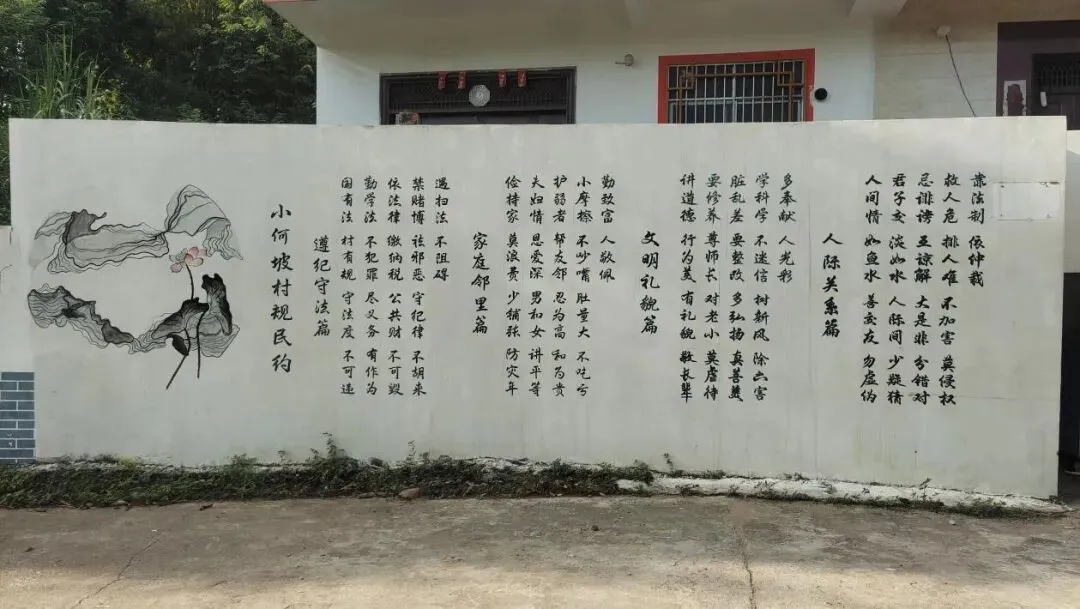 小何坡村规民约
遵纪守法篇
国有法 村有规 守法度 不可违
勤学法 不犯罪 尽义务 有作为
依法律 缴纳税 公共财 不可毁
禁赌博 祛邪恶 守纪律 不胡来
遇执法 不阻碍
家庭邻里篇
俭持家 莫浪费 少铺张 防灾年
夫妇情 恩爱深 男和女 讲平等
护弱者 帮友邻 忍为高 和为贵
小摩擦 不吵嘴 肚量大 不吃亏
勤致富 人敬佩
文明礼貌篇
讲道德 行为美 有礼貌 敬长辈
要修养 尊师长 对老小 莫虐待
脏乱差 要整改 多弘扬 真善美
学科学 不迷信 树新风 除六害
多奉献 人光彩
人际关系篇
人间情 如鱼水 善交友 勿虚伪
君子交 淡如水 人际间 少疑猜
忌诽谤 互谅解 大是非 分错对
救人危 排人难 不加害 莫侵权
靠法制 依仲裁